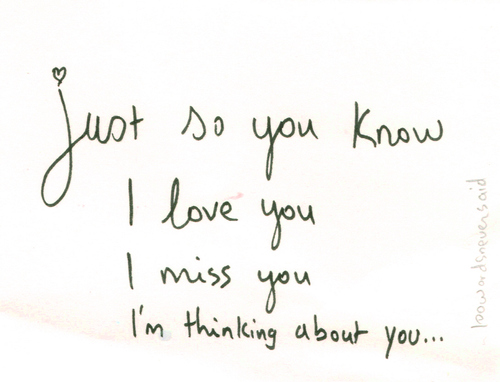 just so you know
I love you
I miss you
I'm thinking about you...
100wordsneversaid